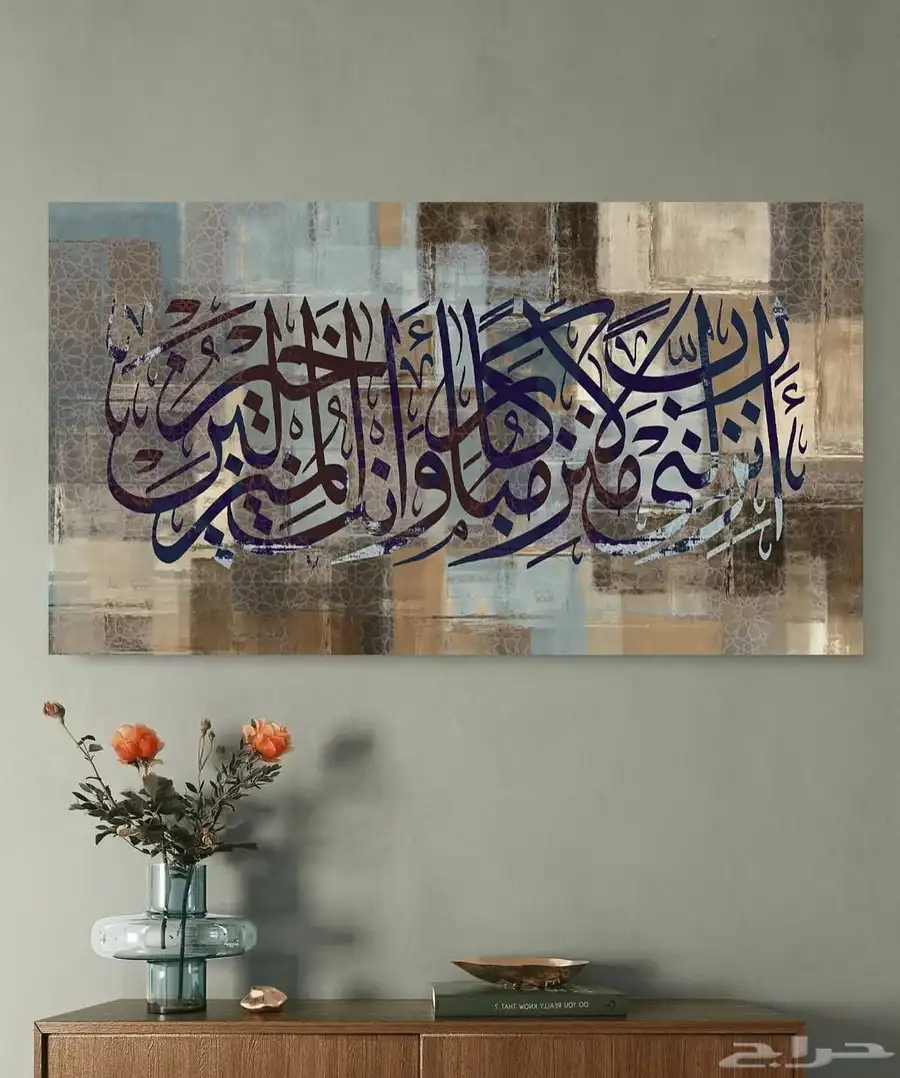 رب أنزلني منزلا مباركا وأنت خير المنزلين
DO YOU REALLY KNOW THAT ?
حراج